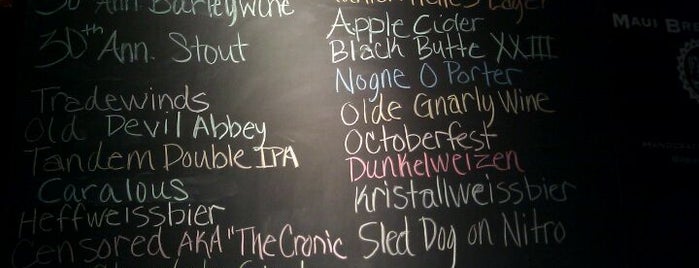 30th Ann Barleywine
30th Ann. Stout
Tradewinds
Old Devil Abbey
Tandem Double IPA
Caralous
Heffweissbier
Censored AKA "The Cronic
Lager
Apple Cider
Black Butte XXIII
Nogne O Porter
Olde Gnarly Wine
Octoberfest
Dunkelweizen
Kristallweissbier
Sled Dog on Nitro
Maui Bre